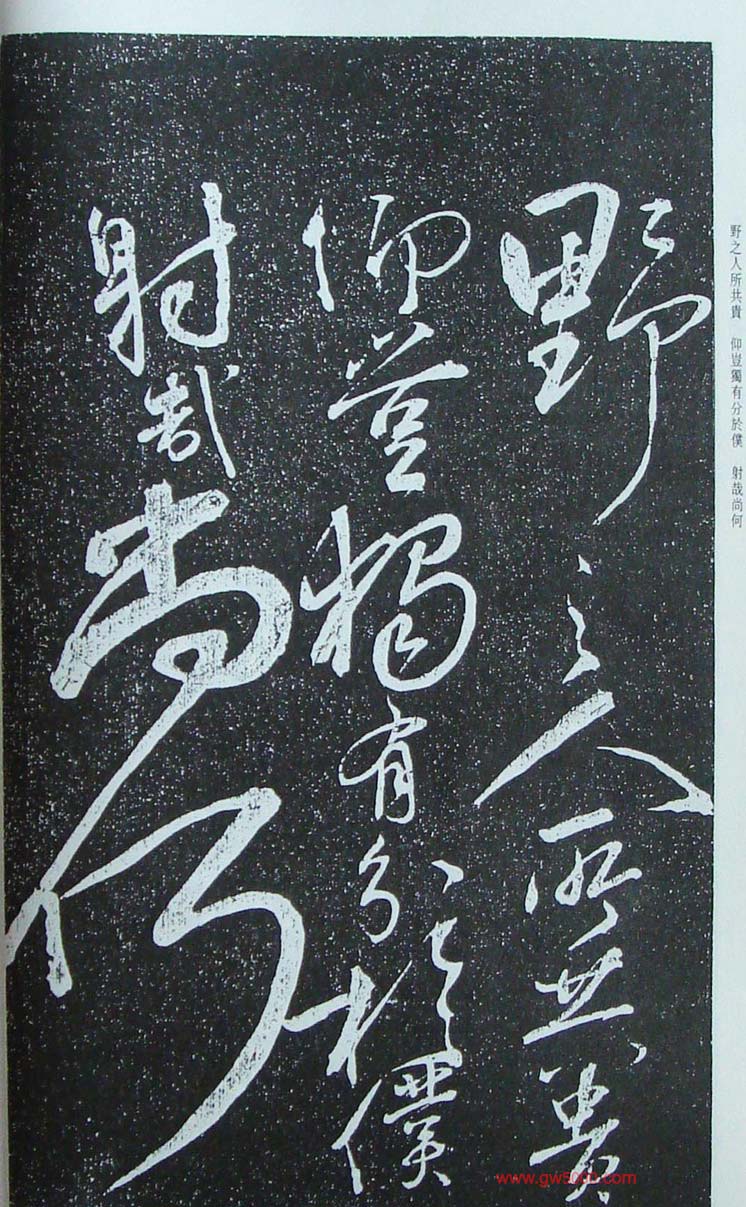 野之人所共貴　仰豈獨有分於僕　射哉尚何
野之人所共貴
仰豈獨有分於僕
射哉尚何
www.gw5000.com